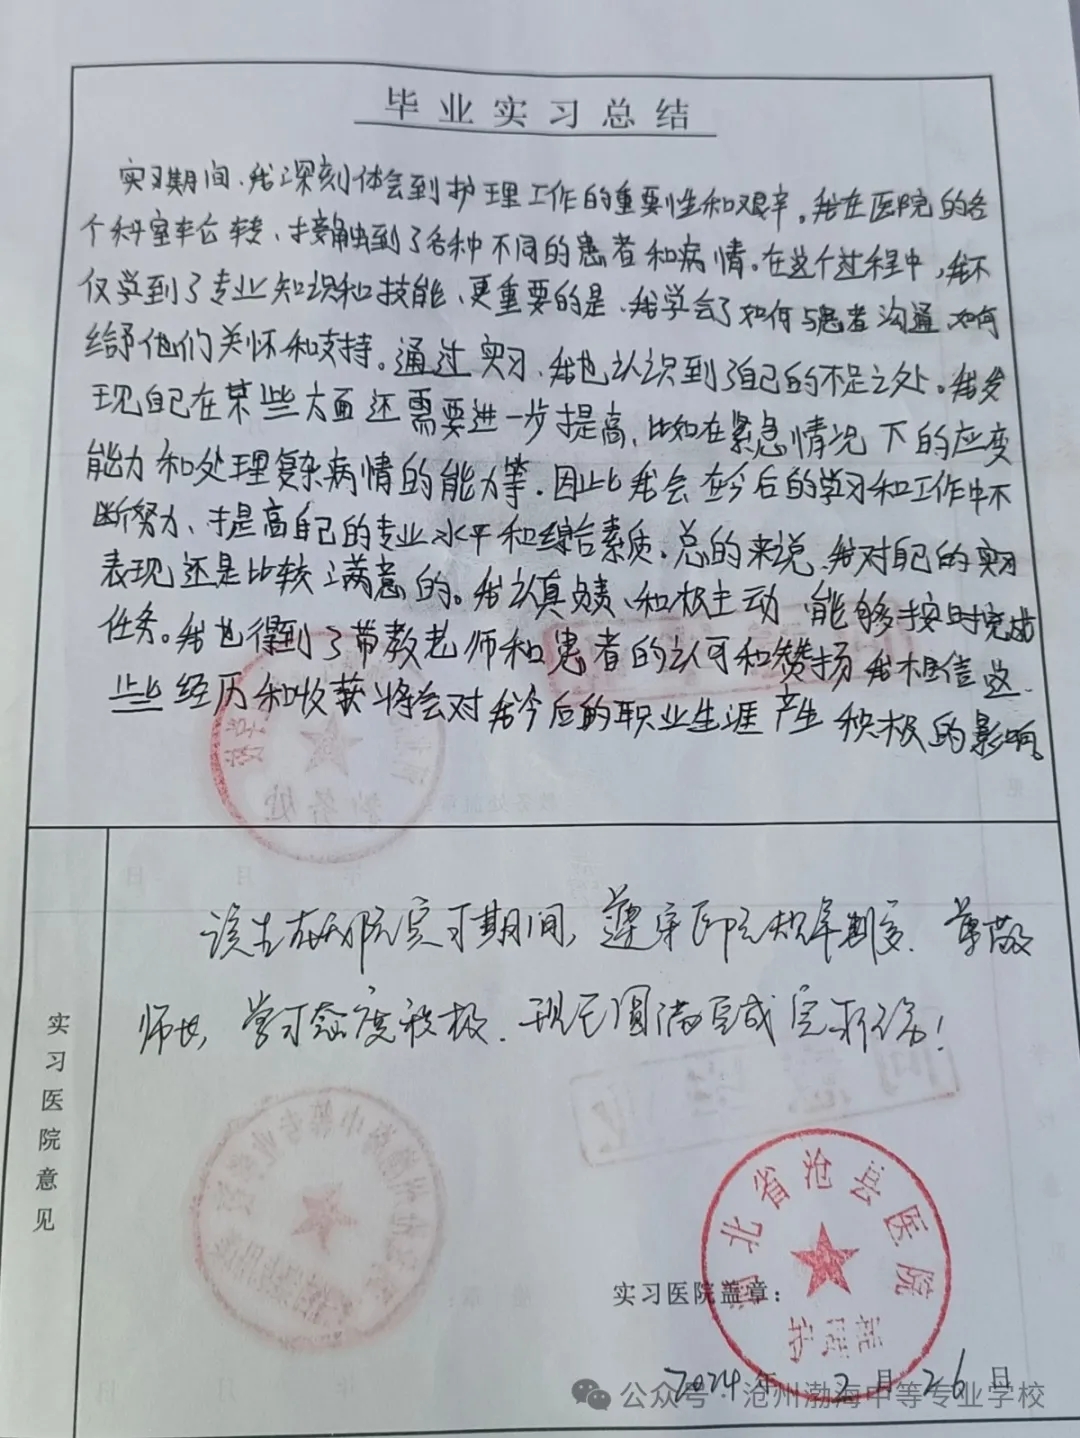 毕业实习总结
实习期间、我深刻体会到护理工作的重要性和艰辛。我在医院的各
个科室轮转、接触到了各种不同的患者和病情。在这个过程中,我不
仅学到了专业知识和技能、更重要的是、我学会了如何与患者沟通、如何
给予他们关怀和支持。通过实习、我也认识到了自己的不足之处。我发
现自己在某些方面还需要进一步提高、比如在紧急情况下的应变
能力和处理复杂病情的能力等。因此我会在今后的学习和工作中不
断努力、提高自己的专业水平和综合素质。总的来说、我对自己的实习
表现还是比较满意的。我认真负责、和积主动、能够按时完成
任务。我也得到了带教老师和患者的认可和赞扬 我相信这
些经历和收获将会对我今后的职业生涯产生积极的影响。
实习医院意见
该生在我院实习期间,遵守医院规章制度、尊敬
师长,学习态度积极、现已圆满完成实习任务!
实习医院盖章:
河北省沧县医院
2024年2月26日
公众号·沧州渤海中等专业学校